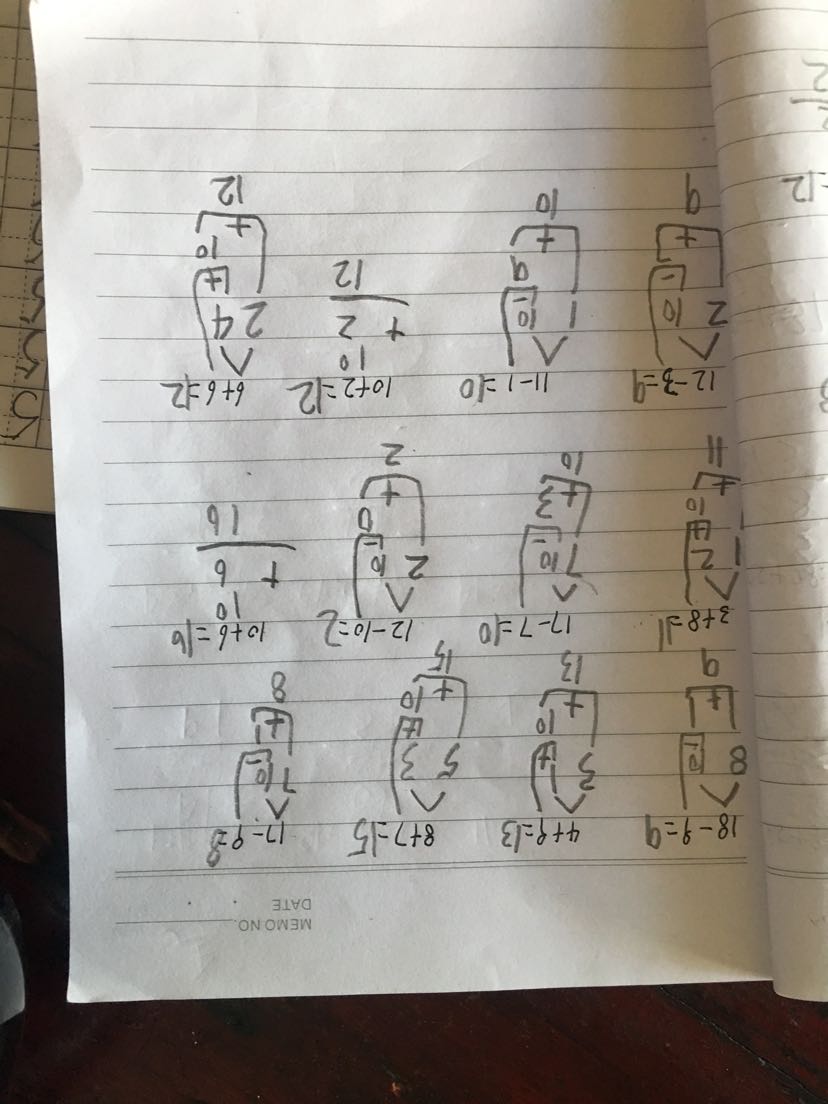 MEMO NO.
DATE
18-9=9 4+9=13 8+7=15 17-9=8
8 10 3 1 5 3 7 10
- + + -
+ 1 + 10 + 10 + 1
9 13 15 8
3+8=11 17-7=10 12-10=2 10+6=16
1 2 7 10 2 10 10
+ - - + 6
+ 10 + 3 + 0 16
11 10 2
12-3=9 11-1=10 10+2=12 6+6=12
2 10 1 10 10 2 4
- - + 2 +
+ + 9 12 + 10
9 10 12
=12